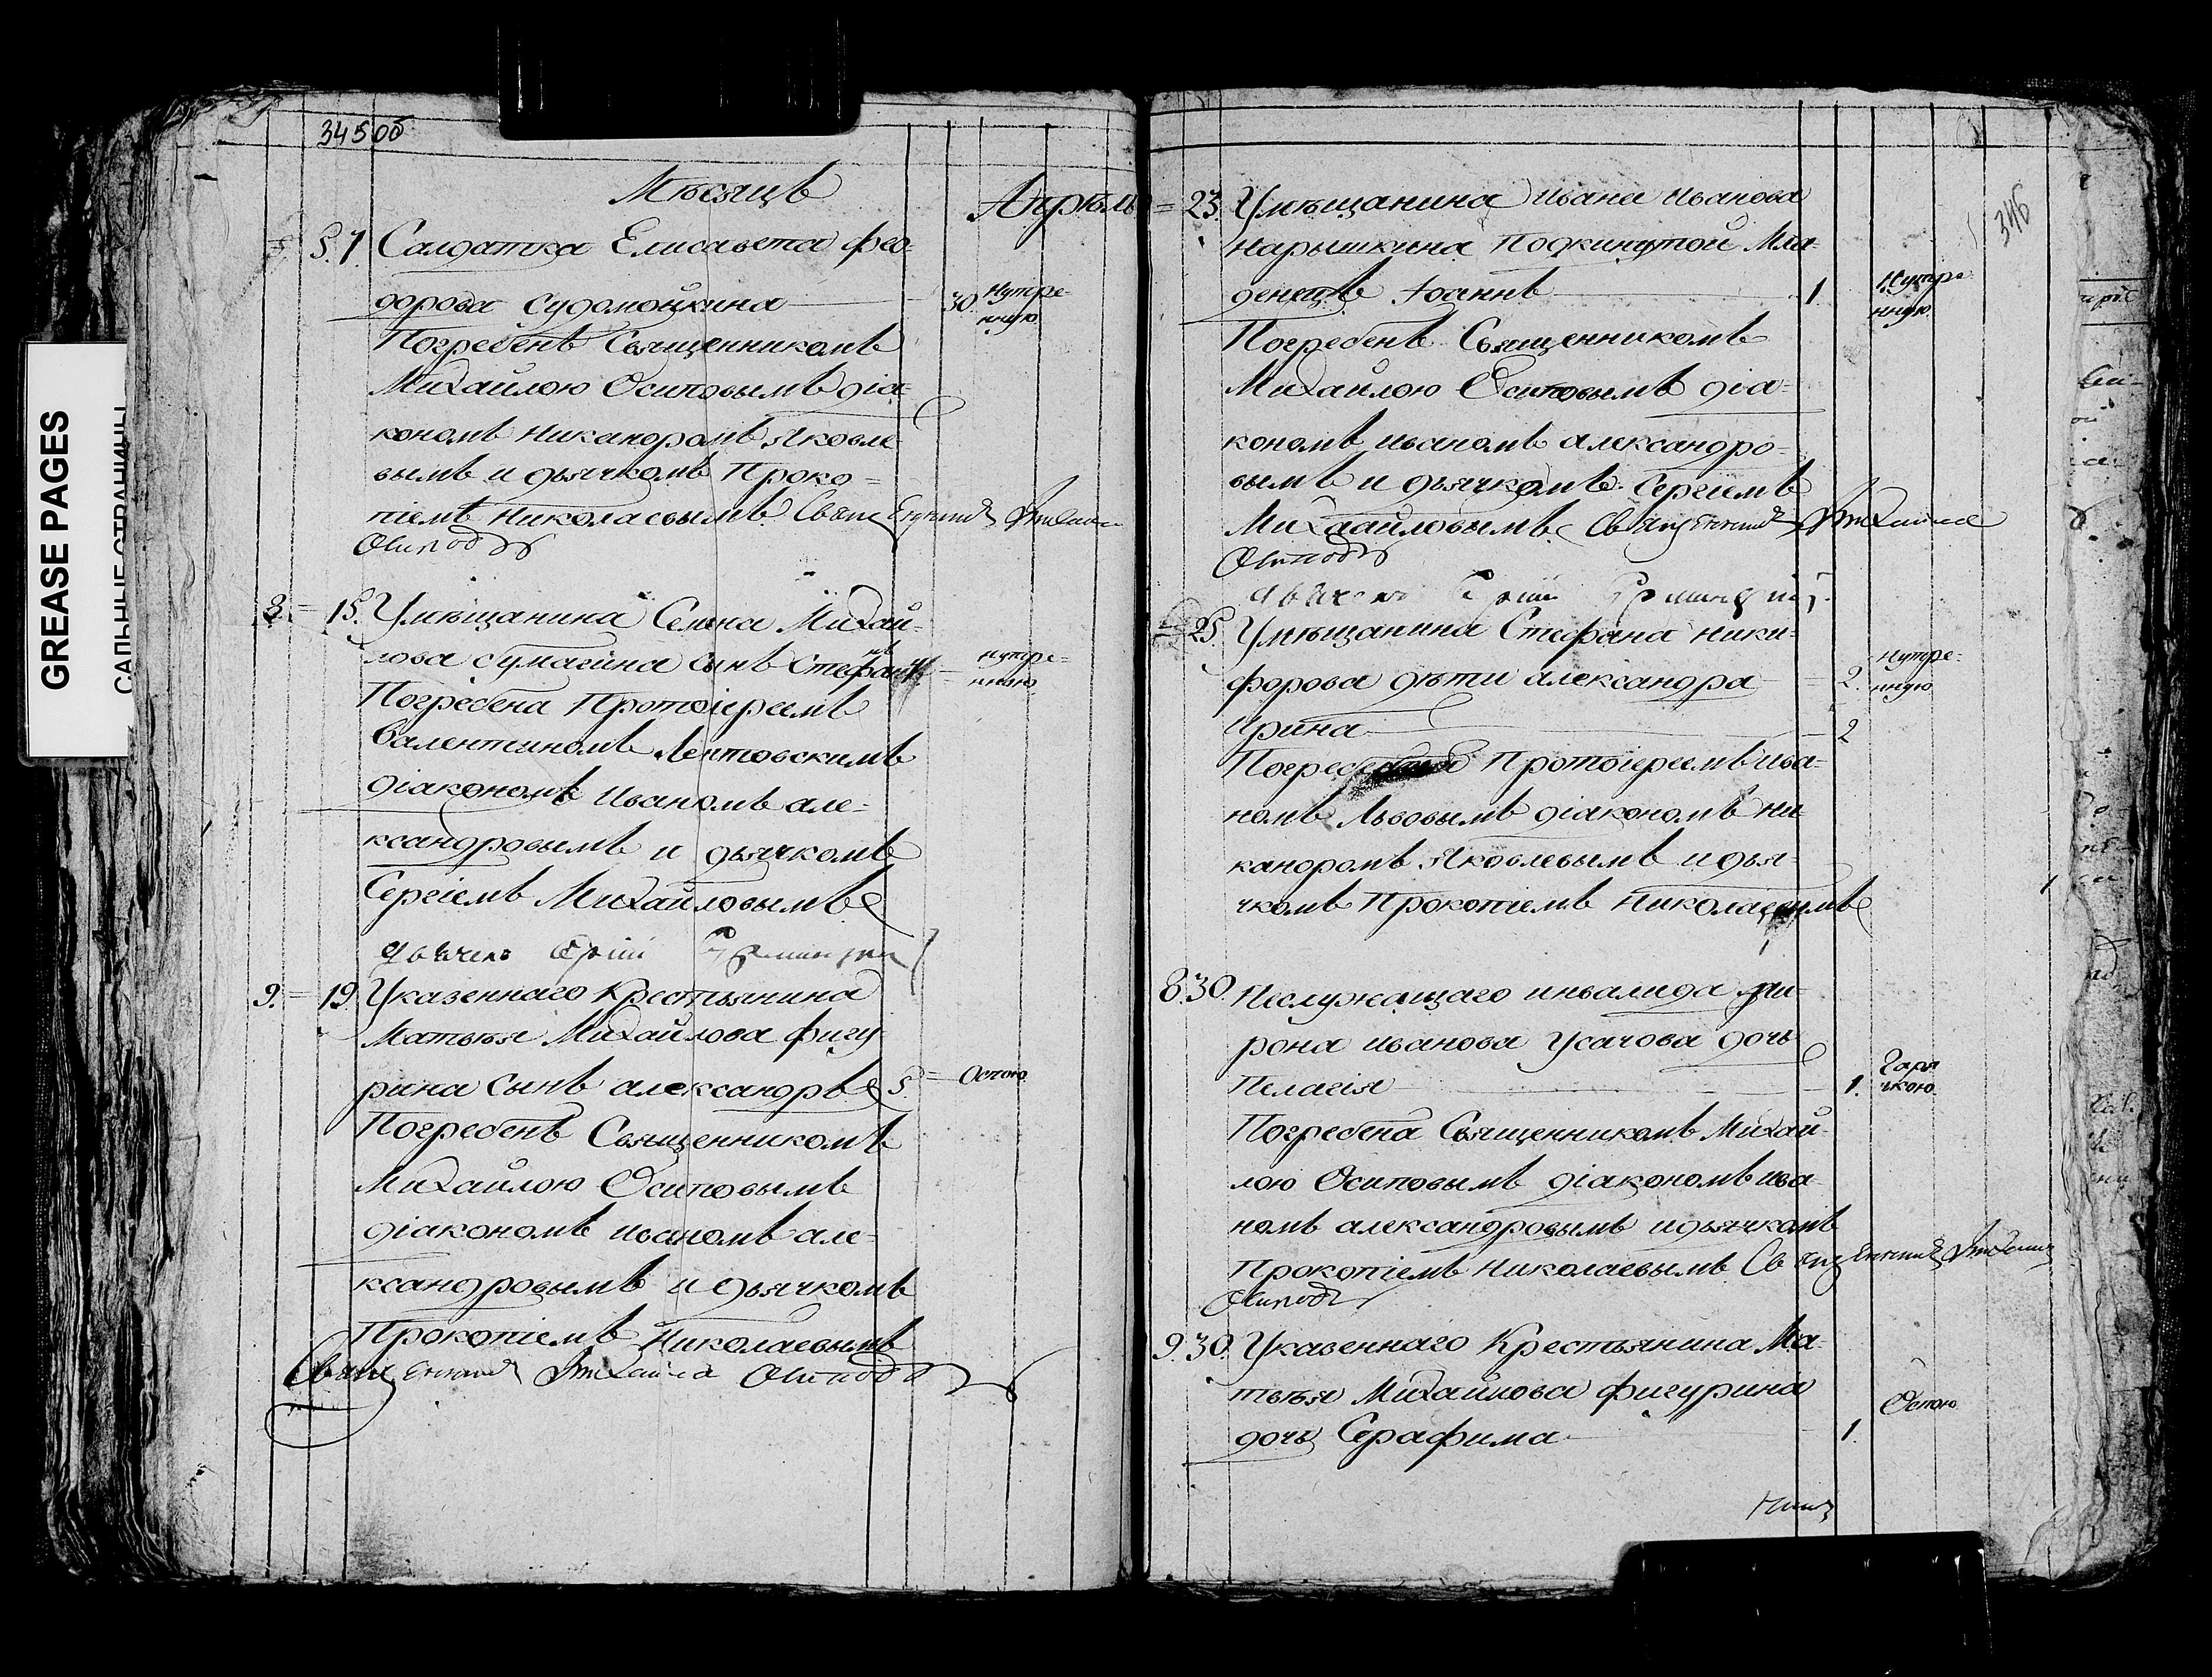 GREASE PAGES
САЛЬНЫЕ СТРАНИЦЫ
345об
Мѣсяцъ Апрѣль
§. 7. Салдатка Елисавета Фео-
дорова Судомойкина 30. Нутре-
нною.
Погребенъ Священникомъ
Михайлою Осиповымъ діа-
кономъ Никандромъ Яковле-
вымъ и дьячкомъ Проко-
піемъ Николаевымъ. Священникъ Михаилъ
Осиповъ
8. = 15. У мѣщанина Семена Михай-
лова Сумагина сынъ Стефанъ нутре-
нною
Погребена Протоіереемъ
Валентиномъ Лентовскимъ
діакономъ Иваномъ Але-
ксандровымъ и дьячкомъ
Сергіемъ Михайловымъ
дьячекъ Сергій
9. = 19. У казеннаго Крестьянина
Матвѣя Михайлова Фигу-
рина сынъ Александръ 5. = Оспою.
Погребенъ Священникомъ
Михайлою Осиповымъ
діакономъ Иваномъ Але-
ксандровымъ и дьячкомъ
Прокопіемъ Николаевымъ
Священникъ Михаила Осиповъ
346
= 23. У мѣщанина Ивана Иванова
Нарышкина Подкинутой Мла-
денецъ Іоаннъ 1. Нутре-
нною.
Погребенъ Священникомъ
Михайлою Осиповымъ діа-
кономъ Иваномъ Александро-
вымъ и дьячкомъ Сергіемъ
Михаайловымъ Священникъ Михаила
Осиповъ
дьячекъ Сергій
25. У мѣщанина Стефана Ники-
форова дѣти Александра 2. Нутре-
нною
Ирина 2
Протоіереемъ Ива-
номъ Львовымъ діакономъ Ни-
кандромъ Яковлевымъ и дья-
чкомъ Прокопіемъ Николаевымъ
8. 30. Неслужащаго инвалида Ми-
рона Иванова Усачова дочь
Пелагія 1. Горя-
чкою.
Погребена Священникомъ Михай-
лою Осиповымъ діакономъ Ива-
номъ Александровымъ и дьячкомъ
Прокопіемъ Николаевымъ Священникъ Михаила
Осиповъ
9. 30. У казеннаго Крестьянина Ма-
твѣя Михайлова Фигурина Оспою.
дочь Серафима 1.